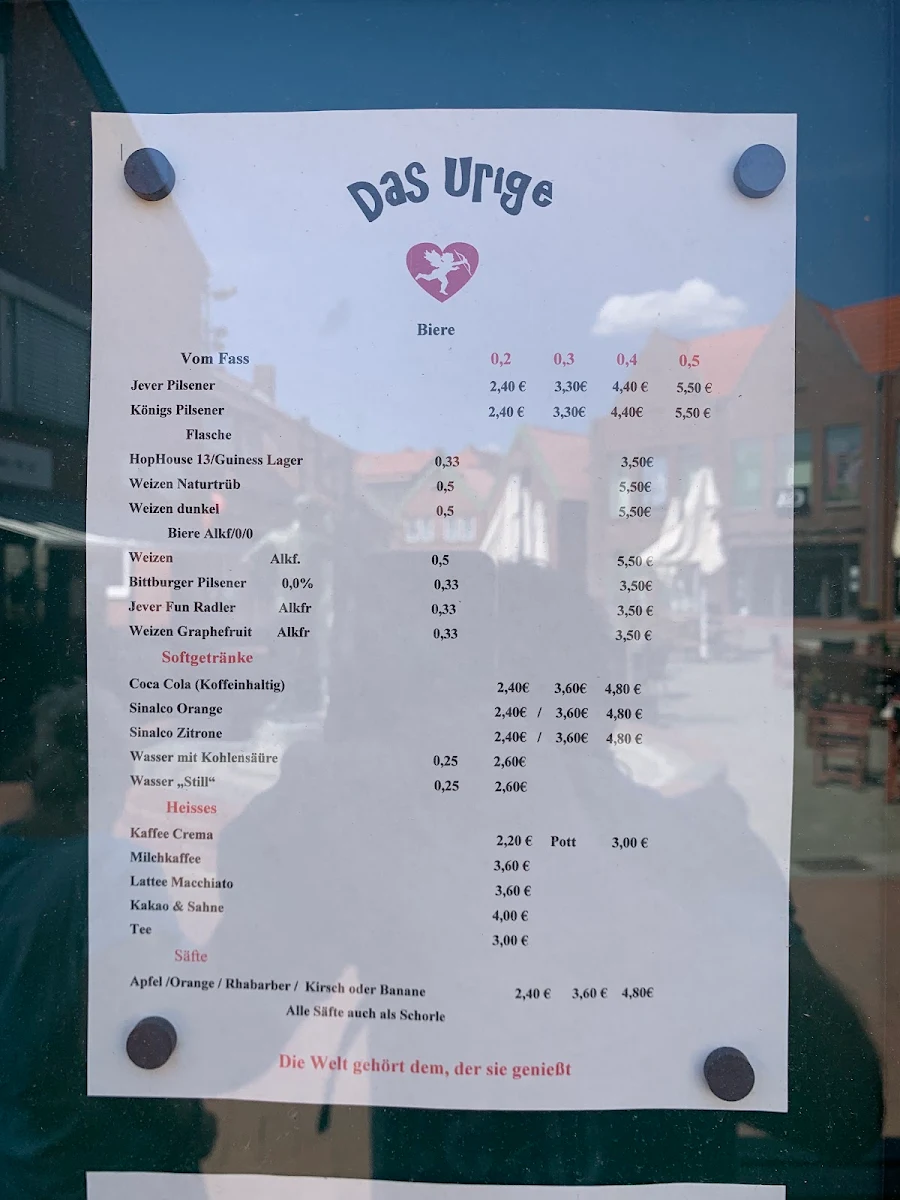 Das Urige
Biere
Vom Fass 0,2 0,3 0,4 0,5
Jever Pilsener 2,40 € 3,30€ 4,40 € 5,50 €
Königs Pilsener 2,40 € 3,30€ 4,40€ 5,50 €
Flasche
HopHouse 13/Guiness Lager 0,33 3,50€
Weizen Naturtrüb 0,5 5,50€
Weizen dunkel 0,5 5,50€
Biere Alkf/0/0
Weizen Alkf. 0,5 5,50 €
Bittburger Pilsener 0,0% 0,33 3,50€
Jever Fun Radler Alkfr 0,33 3,50 €
Weizen Graphefruit Alkfr 0,33 3,50 €
Softgetränke
Coca Cola (Koffeinhaltig) 2,40€ 3,60€ 4,80 €
Sinalco Orange 2,40€ / 3,60€ 4,80 €
Sinalco Zitrone 2,40€ / 3,60€ 4,80 €
Wasser mit Kohlensäüre 0,25 2,60€
Wasser „Still“ 0,25 2,60€
Heisses
Kaffee Crema 2,20 € Pott 3,00 €
Milchkaffee 3,60 €
Lattee Macchiato 3,60 €
Kakao & Sahne 4,00 €
Tee 3,00 €
Säfte
Apfel /Orange / Rhabarber / Kirsch oder Banane 2,40 € 3,60 € 4,80€
Alle Säfte auch als Schorle
Die Welt gehört dem, der sie genießt